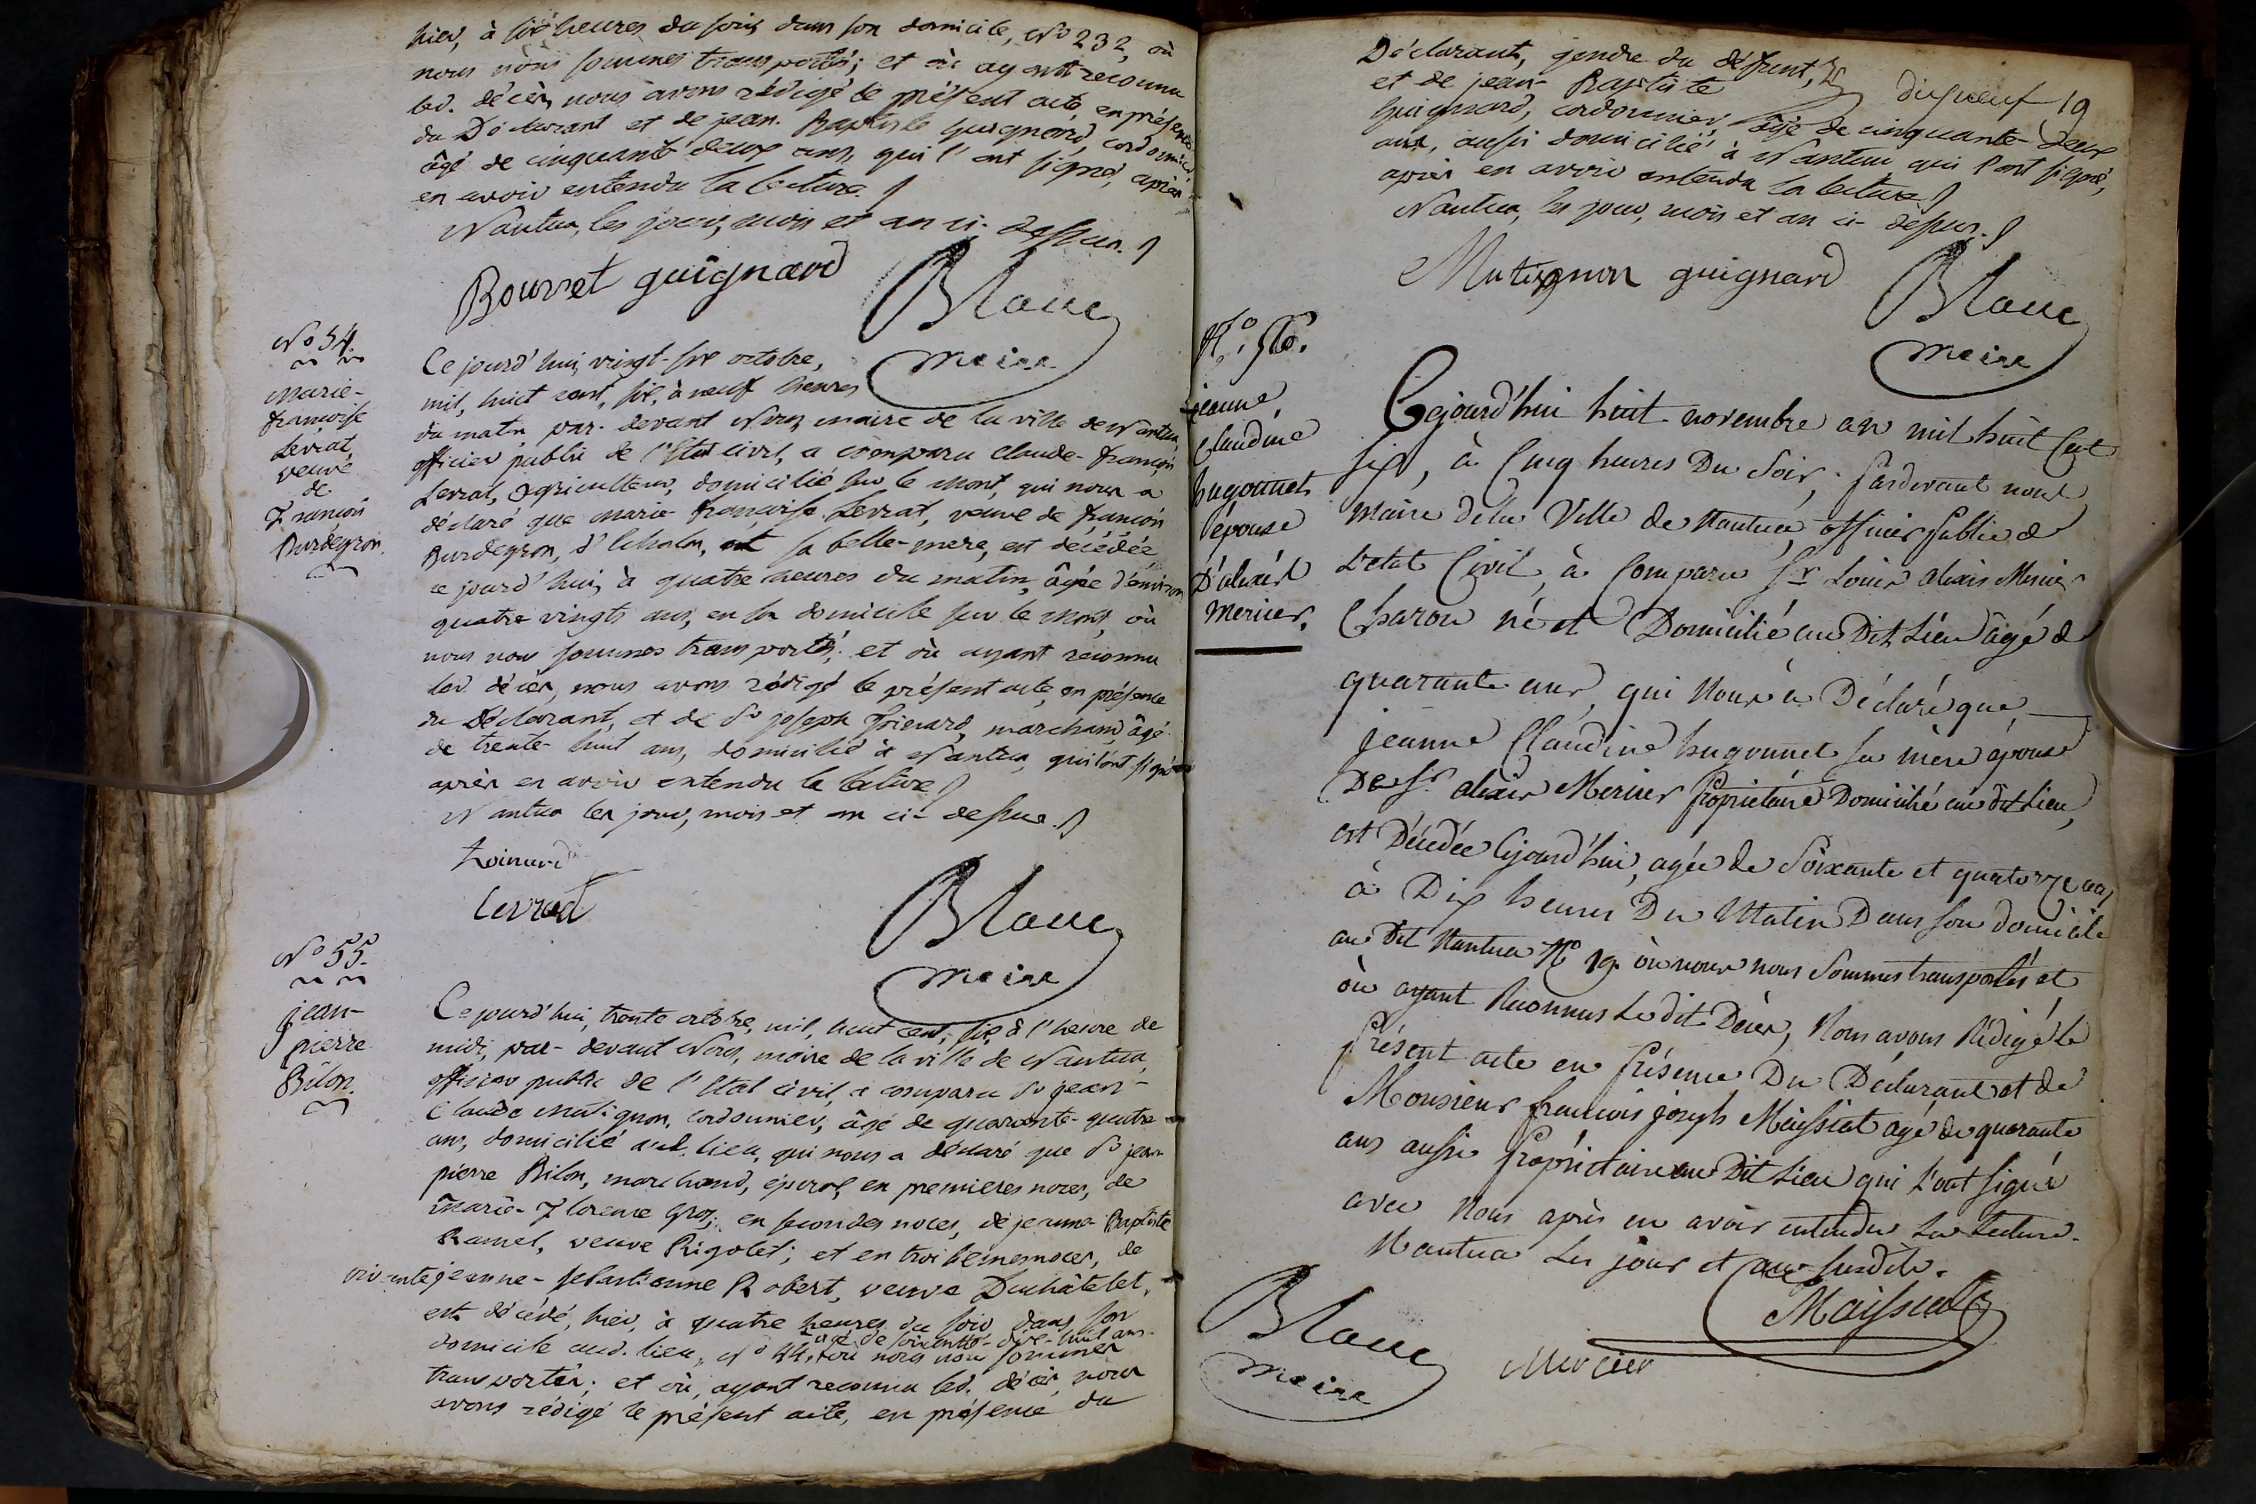 hier, à six heures du soir, dans son domicile, N° 232, où
nous nous sommes transportés; et où ayant reconnu
led. décès, nous avons rédigé le présent acte, en présence
du Déclarant et de jean-Baptiste Guignard, cordonnier,
âgé de cinquante deux ans, qui l'ont signé, après
en avoir entendu la lecture.
Nantua, les jour, mois et an ci-dessus.
Bourret guignard
Blanc
maire
N° 54.
marie-
françoise
Levrat,
veuve
de
François
Burdeyron.
Ce jourd'hui, vingt-six octobre,
mil, huit cent, six, à neuf heures
du matin, par-devant Nous, maire de la ville de Nantua,
officier public de l'Etat civil, a comparu claude-françois
Levrat, agriculteur, domicilié sur le mont, qui nous a
déclaré que marie-françoise Levrat, veuve de françois
Burdeyron, d'Echalon, sa belle-mere, est décédée
ce jourd'hui, à quatre heures du matin, âgée d'environ
quatre vingts ans, en son domicile sur le mont, où
nous nous sommes transportés; et où ayant reconnu
led. décès, nous avons rédigé le présent acte, en présence
du Déclarant, et de Sr joseph Thoinard, marchand âgé
de trente-huit ans, domicilié à Nantua, qui l'ont signé
après en avoir entendu la lecture
Nantua les jour, mois et an ci-dessus.
thoinard
Levrat
Blanc
maire
N° 55.
jean-
pierre
Bilon.
Ce jourd'hui, trente octobre, mil, huit cent, six, à l'heure de
midi, par-devant Nous, maire de la ville de Nantua,
officier public de l'Etat civil, a comparu Sr jean-
claude mutignon, cordonnier, âgé de quarante-quatre
ans, domicilié aud. lieu, qui nous a déclaré que Sr jean
pierre Bilon, marchand, époux, en premieres noces, de
marie-Florence Groz; en secondes noces, de jeanne-Baptiste
Ramel, veuve Rigolet; et en troisiemes noces, de
vivante jeanne-sebastienne Robert, veuve Duchâtelet,
est décédé, hier, à quatre heures du soir, dans son
âgé de soixante-dix-huit ans.
domicile aud. lieu, N° 44, où nous nous sommes
transportés; et où, ayant reconnu led. décès, nous
avons rédigé le présent acte, en présence du
Déclarant, gendre du défunt,
dixneuf 19
et de jean-Baptiste
Guignard, cordonnier, âgé de cinquante-deux
ans, aussi domicilié à Nantua, qui l'ont signé,
après en avoir entendu la lecture
Nantua, les jour, mois et an ci-dessus.
Mutignon guignard
Blanc
maire
N°. 56.
jeanne,
Claudine
hugonnet
épouse
D'alexis
mercier.
Cejourd'hui huit novembre an mil huit Cent
six, à Cinq heures Du Soir, pardevant nous
maire de la Ville de Nantua, officier public de
L'etat Civil, à Comparu Sr. Louis alexis Mercier
Charon né et Domicilié au Dit Lieu âgé de
quarante ans, qui Nous à Déclaré que
jeanne Claudine hugonnet sa mère épouse
De Sr. alexis Mercier propriétaire Domicilié au dit Lieu,
est Décédée Cejourd'hui, agée de Soixante et quatorze ans
à Dix heures Du Matin Dans son domicile
au Dit Nantua N° 19. où nous nous Sommes transportés et
où ayant Reconnus Le dit Décès, Nous avons Rédigé Le
présent acte en présence Du Déclarant et de
Monsieur françois joseph Maissiat agé de quarante
ans aussi propriétaire au Dit Lieu qui L'ont signé
avec Nous après en avoir entendu La Lecture.
Nantua Les jour et an susdits.
Maissiat
Blanc
maire
Mercier